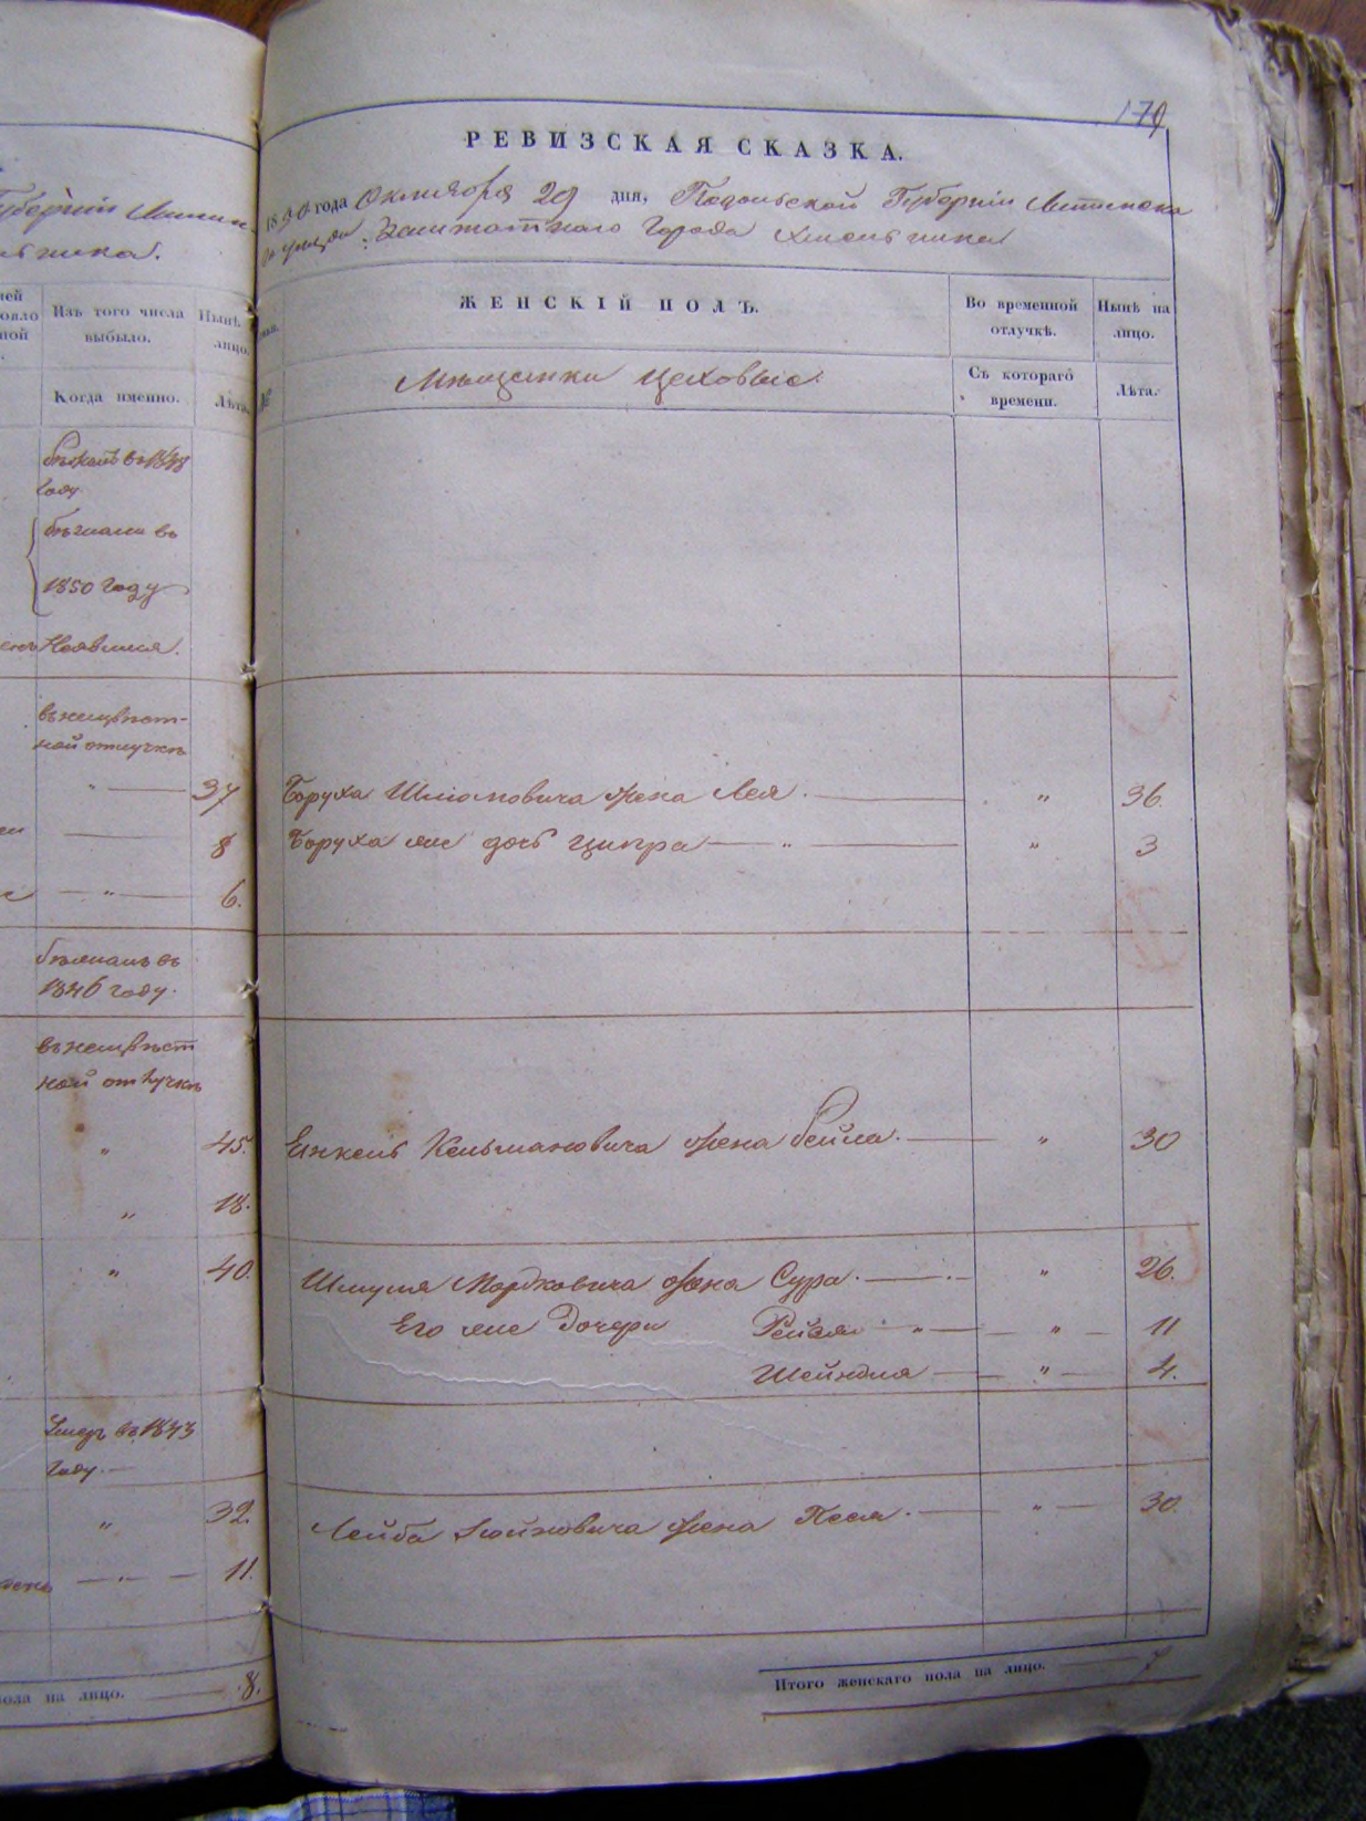 179
РЕВИЗСКАЯ СКАЗКА.
1850 года Октября 29 дня, Подольской Губерніи Литинска
го уѣзда, Заштатнаго Города Хмельника
ЖЕНСКІЙ ПОЛЪ.
Во временной отлучкѣ.
Нынѣ на лицо.
Мѣщанки Цеховые:
Съ котораго времени.
Лѣта.
Боруха Шліомовича жена Лея. 36.
Боруха же дочь Ципра " " 3
Енкель Кельмановича жена Бейла. " 30
Шмуля Мордковича жена Сура. " 26.
Его же Дочери Рейзя " " 11
Шейндля " 4.
Лейба жена Песя. " 30.
Итого женскаго пола на лицо. 7
Губерніи Литин
ника.
Изъ того числа выбыло.
Нынѣ лицо.
Когда именно.
Лѣта.
бѣжалъ въ 1848
году
бѣжали въ
1850 году
Неявился.
въ неизвѣст-
ной отлучкѣ
" 37
8
" 6.
бѣжалъ въ
1846 году.
въ неизвѣст
ной отлучкѣ
" 45.
" 18.
" 40.
Умеръ въ 1843
году.
" 32.
" 11.
пола на лицо. 8.